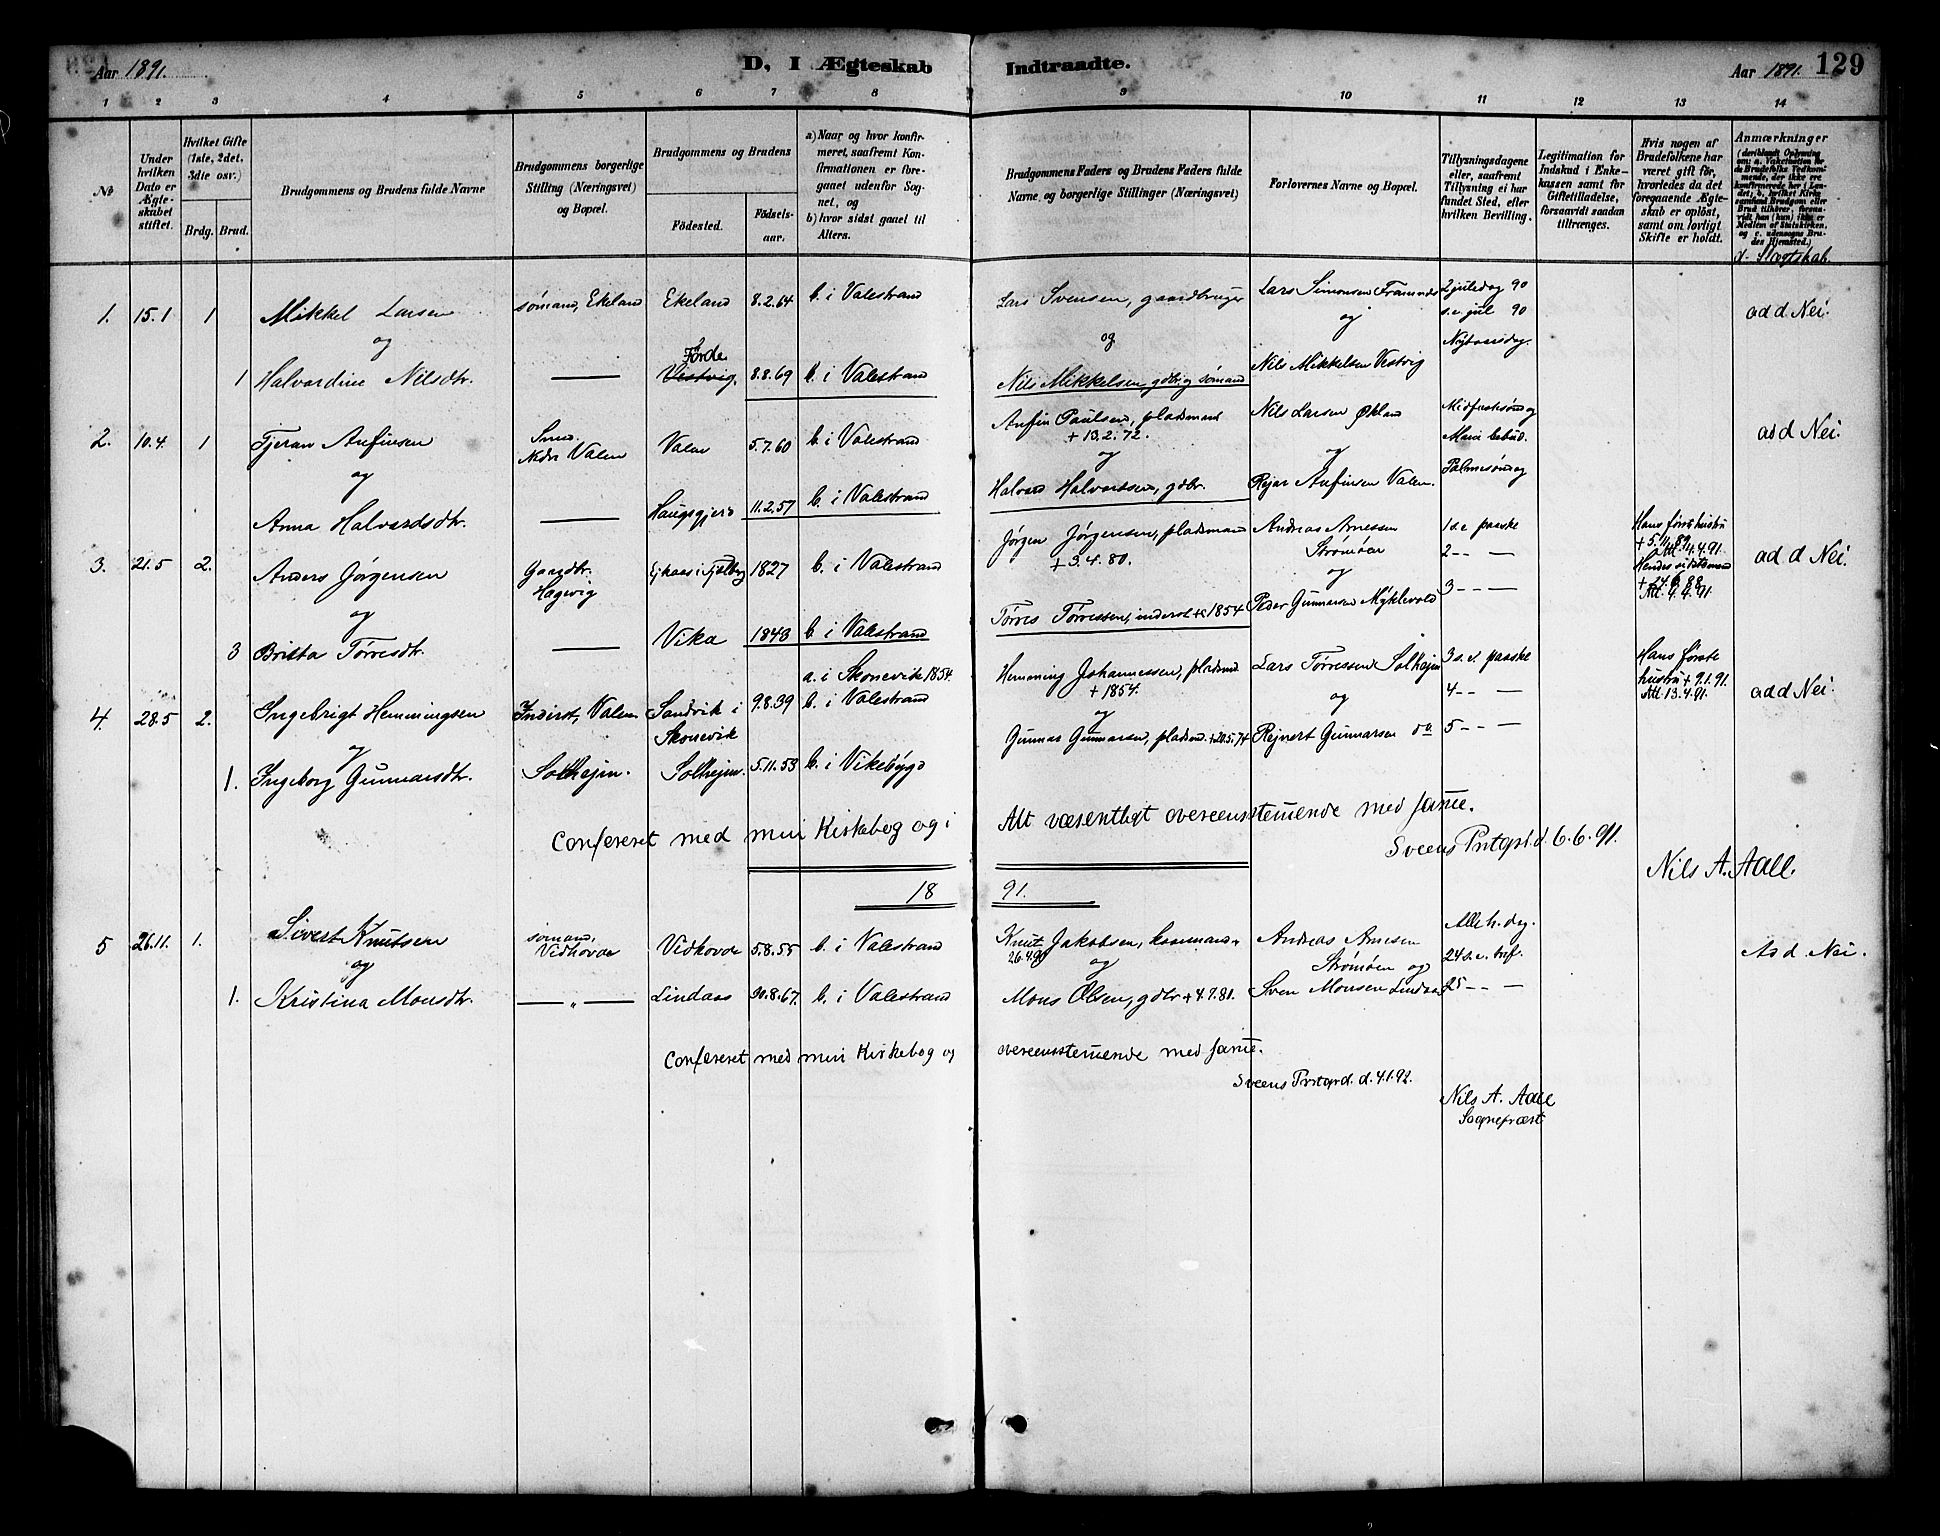 Aar 1891.
D, I Ægteskab Indtraadte.
Aar 1891. 129
1 2 3 4 5 6 7 8 9 10 11 12 13 14
No
Under hvilken Dato er Ægteskabet stiftet.
Hvilket Gifte (1ste, 2det, 3die osv.)
Brdg. Brud.
Brudgommens og Brudens fulde Navne
Brudgommens borgerlige Stilling (Næringsvei) og Bopæl.
Brudgommens og Brudens
Födested.
Födselsaar.
a) Naar og hvor konfirmeret, saafremt Konfirmationen er foregaaet udenfor Sognet, og
b) hvor sidst gaaet til Alters.
Brudgommens Faders og Brudens Faders fulde Navne, og borgerlige Stillinger (Næringsvei)
Forlovernes Navne og Bopæl.
Tillysningsdagene eller, saafremt Tillysning ei har fundet Sted, efter hvilken Bevilling.
Legitimation for Indskud i Enkekassen samt for Giftetilladelse, forsaavidt saadan tiltrænges.
Hvis nogen af Brudefolkene har været gift før, hvorledes da det foregaaende Ægteskab er opløst, samt om lovligt Skifte er holdt.
Anmærkninger
(deriblandt Oplysning om: a. Vaksination for de Brudefolks Vedkommende, der ikke ere konfirmerede her i Landet; b. hvilket Kirkesamfund Brudgom eller Brud tilhører, forsaavidt han (hun) ikke er Medlem af Statskirken, og c. udensogns Brudes Hjemsted.)
d. Slægtskab.
1. 15.1 1 Mikkel Larsen sømand, Ekeland Ekeland 8.2.64 b. i Valestrand Lars Svensen, gaardbruger Lars Simonsen Framnes 2 juledag 90 ad d Nei.
og og og s.e. jul 90
Førde Nytaarsdag.
1 Halvardine Nilsdtr. — Vestvig, 8.8.69 b. i Valestrand Nils Mikkelsen, gdbr. og sømand Nils Mikkelsen Vestvig
2. 10.4 1 Tjeran Anfinsen Smed Nedre Valen Valen 5.7.60 b. i Valestrand Anfin Paulsen, pladsmand + 13.2.72. Nils Larsen Økland Midfastesøndag ad d Nei.
og og og Marie bebud.
Anna Halvardsdtr. — Haugsgjerd 11.2.57 b. i Valestrand Halvard Halvardsen, gdbr. Rejar Anfinsen Valen. Palmesøndag
3. 21.5 2. Anders Jørgensen Gaardbr. Hagevig Ejkaas i Fjelberg 1827 b. i Valestrand Jørgen Jørgensen, pladsmand + 3.4.80. Andreas Arnessen Strømøen 1 s.e. paaske Hans første hustru + 5.11.89 Att. 4.4.91. ad d Nei.
og og 2 - - — Hendes sidste mand
3 Britta Tørresdtr. — Vika 1843 b. i Valestrand Tørres Tørressen, inderst + 1854 Peder Gunnarsen Myklevold 3 - - —
4. 28.5 2. Ingebrigt Hemmingsen Inderst, Valen Sandvik i Skonevik 9.8.39 a. i Skonevik 1854. b. i Valestrand Hemming Johannessen, pladsmd. + 1854. Lars Tørressen Solhejm 3 s.e. paaske Hans første hustru + 9.1.91. Att. 13.4.91. ad d Nei.
og og og 4 - - —
1. Ingeborg Gunnarsdtr. Solhejm. Solhejm. 5.11.53 b. i Vikebygd Gunnar Gunnarsen, pladsmd. + 20.5.74 Rejnert Gunnarsen do. 5 - - —
Confereret med min Kirkebog og i Alt væsentligt overeensstem̅ende med sam̅e.
Sveens Prstgrd. d. 6.6.91.
Nils A. Aall.
18 91.
5 26.11. 1. Sivert Knutsen sømand, Vidhovda Vidhovda 5.8.55 b. i Valestrand Knut Jakobsen, kaarmand + 26.4.90 Andreas Arnesen Strømøen og Alleh. dag. ad d Nei.
og og 24 s.e. tref.
1. Kristina Monsdtr. — „ — Lindaas 30.8.67. b. i Valestrand Mons Olsen, gdbr. + 4.7.81. Sven Monsen Lindaas 25 - - —
Confereret med min Kirkebog og overeensstem̅ende med sam̅e.
Sveens Prstgrd. d. 4.1.92.
Nils A. Aall
Sognepræst